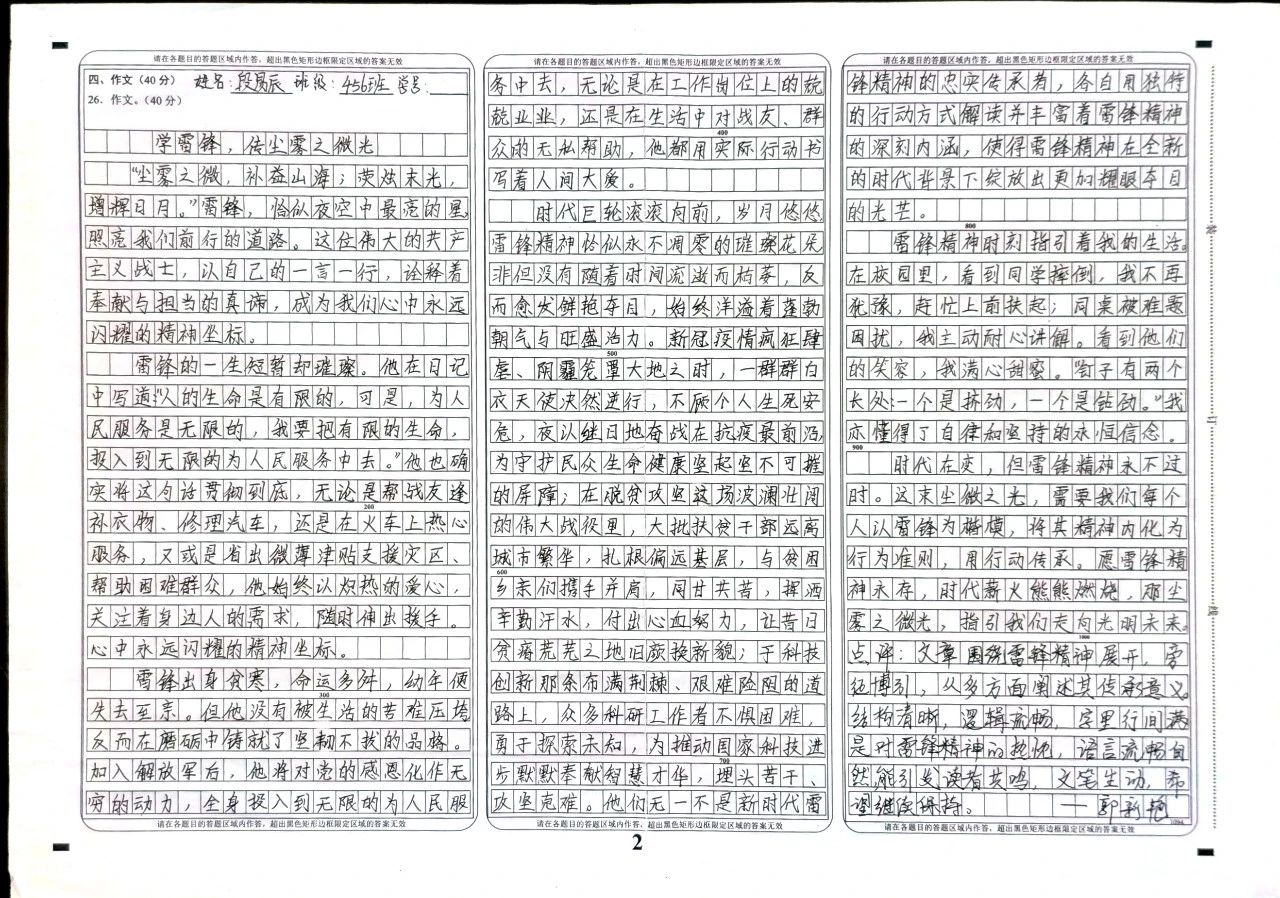 请在各题目的答题区域内作答，超出黑色矩形边框限定区域的答案无效
四、作文（40分） 姓名：段易辰 班级：456班 学号：
26．作文。（40分）
学雷锋，传尘雾之微光
“尘雾之微，补益山海；荧烛末光，
增辉日月。”雷锋，恰似夜空中最亮的星，
照亮我们前行的道路。这位伟大的共产
主义战士，以自己的一言一行，诠释着
奉献与担当的真谛，成为我们心中永远
闪耀的精神坐标。
雷锋的一生短暂却璀璨。他在日记
中写道：“人的生命是有限的，可是，为人
民服务是无限的，我要把有限的生命，
投入到无限的为人民服务中去。”他也确
实将这句话贯彻到底，无论是帮战友缝
200
补衣物、修理汽车，还是在火车上热心
服务，又或是省出微薄津贴支援灾区、
帮助困难群众，他始终以炽热的爱心，
关注着身边人的需求，随时伸出援手。
心中永远闪耀的精神坐标。
雷锋出身贫寒，命运多舛，幼年便
300
失去至亲。但他没有被生活的苦难压垮
反而在磨砺中铸就了坚韧不拔的品格。
加入解放军后，他将对党的感恩化作无
穷的动力，全身投入到无限的为人民服
请在各题目的答题区域内作答，超出黑色矩形边框限定区域的答案无效
请在各题目的答题区域内作答，超出黑色矩形边框限定区域的答案无效
务中去，无论是在工作岗位上的兢
兢业业，还是在生活中对战友、群
400
众的无私帮助，他都用实际行动书
写着人间大爱。
时代巨轮滚滚向前，岁月悠悠，
雷锋精神恰似永不凋零的璀璨花朵
非但没有随着时间流逝而枯萎，反
而愈发鲜艳夺目，始终洋溢着蓬勃
朝气与旺盛活力。新冠疫情疯狂肆
500
虐、阴霾笼罩大地之时，一群群白
衣天使决然逆行，不顾个人生死安
危，夜以继日地奋战在抗疫最前沿，
为守护民众生命健康竖起坚不可摧
的屏障；在脱贫攻坚这场波澜壮阔
的伟大战役里，大批扶贫干部远离
城市繁华，扎根偏远基层，与贫困
600
乡亲们携手并肩，同甘共苦，挥洒
辛勤汗水，付出心血努力，让昔日
贫瘠荒芜之地旧颜换新貌；于科技
创新那条布满荆棘、艰难险阻的道
路上，众多科研工作者不惧困难，
勇于探索未知，为推动国家科技进
700
步默默奉献智慧才华，埋头苦干、
攻坚克难。他们无一不是新时代雷
请在各题目的答题区域内作答，超出黑色矩形边框限定区域的答案无效
2
请在各题目的答题区域内作答，超出黑色矩形边框限定区域的答案无效
锋精神的忠实传承者，各自用独特
的行动方式解读并丰富着雷锋精神
的深刻内涵，使得雷锋精神在全新
的时代背景下绽放出更加耀眼夺目
的光芒。
800
雷锋精神时刻指引着我的生活。
在校园里，看到同学摔倒，我不再
犹豫，赶忙上前扶起；同桌被难题
困扰，我主动耐心讲解。看到他们
的笑容，我满心甜蜜。“钉子有两个
长处：一个是挤劲，一个是钻劲。”我
亦懂得了自律和坚持的永恒信念。
900
时代在变，但雷锋精神永不过
时。这束尘微之光，需要我们每个
人以雷锋为楷模，将其精神内化为
行为准则，用行动传承。愿雷锋精
神永存，时代薪火熊熊燃烧，那尘
雾之微光，指引我们走向光明未来。
1000
点评：文章围绕雷锋精神展开，旁
征博引，从多方面阐述其传承意义。
结构清晰，逻辑流畅，字里行间满
是对雷锋精神的热忱，语言流畅自
然能引发读者共鸣，文笔生动，希
望继续保持。 ——郭新艳
请在各题目的答题区域内作答，超出黑色矩形边框限定区域的答案无效
装
订
线